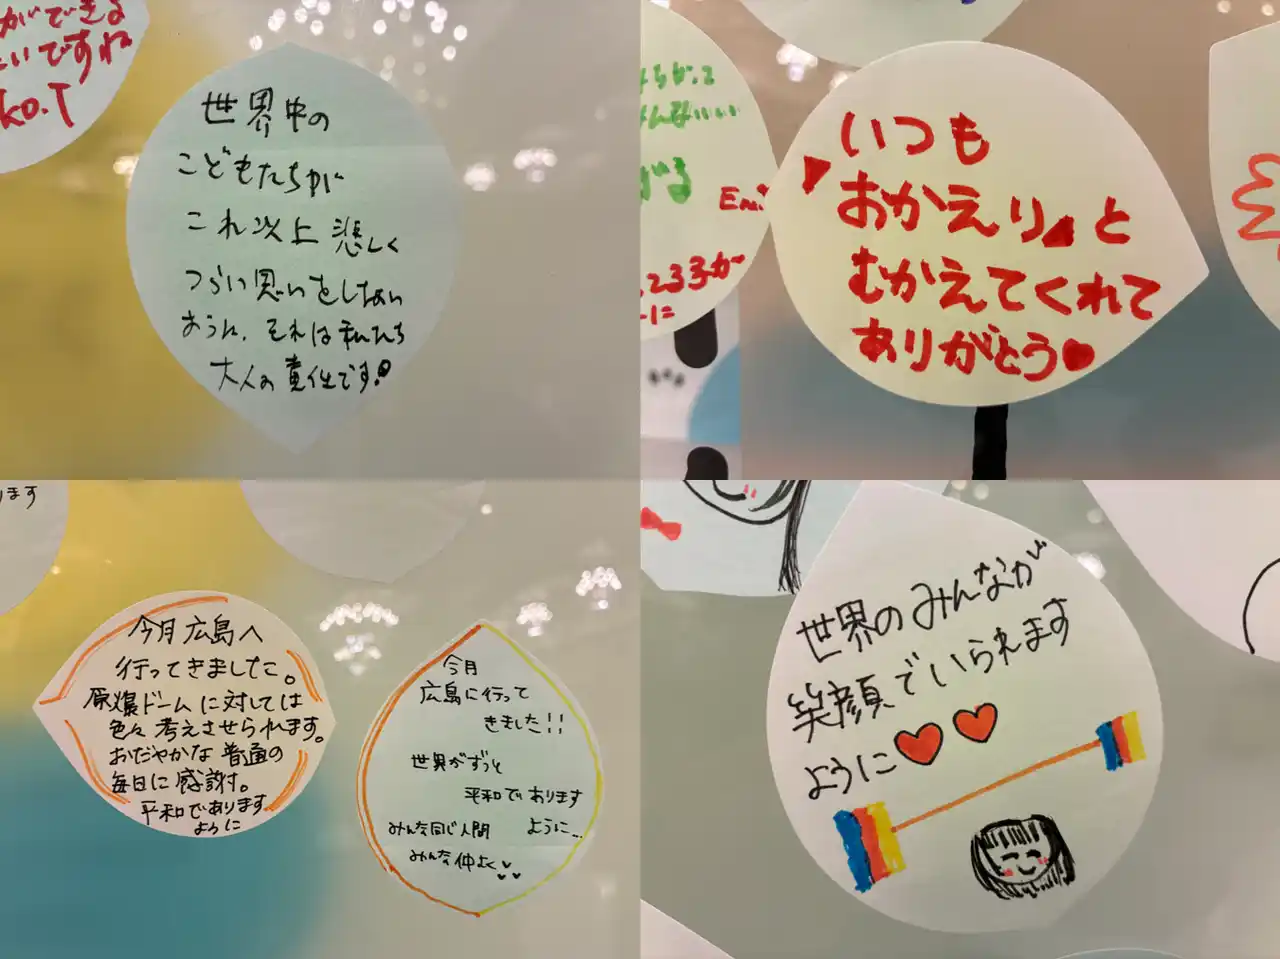 ができる
いですね
ko.T
世界中の
こどもたちが
これ以上悲しく
つらい思いをしない
ように、それは私たち
大人の責任です!
いつも
「おかえり」と
むかえてくれて
ありがとう♥
がる
ります
今月広島へ
行ってきました。
原爆ドームに対しては
色々考えさせられます。
おだやかな普通の
毎日に感謝。
平和であります
ように
今月
広島に行って
きました!!
世界がずっと
平和であります
ように...
みんな同じ人間
みんな仲よく
世界のみんなが
笑顔でいられます
ように♥♥